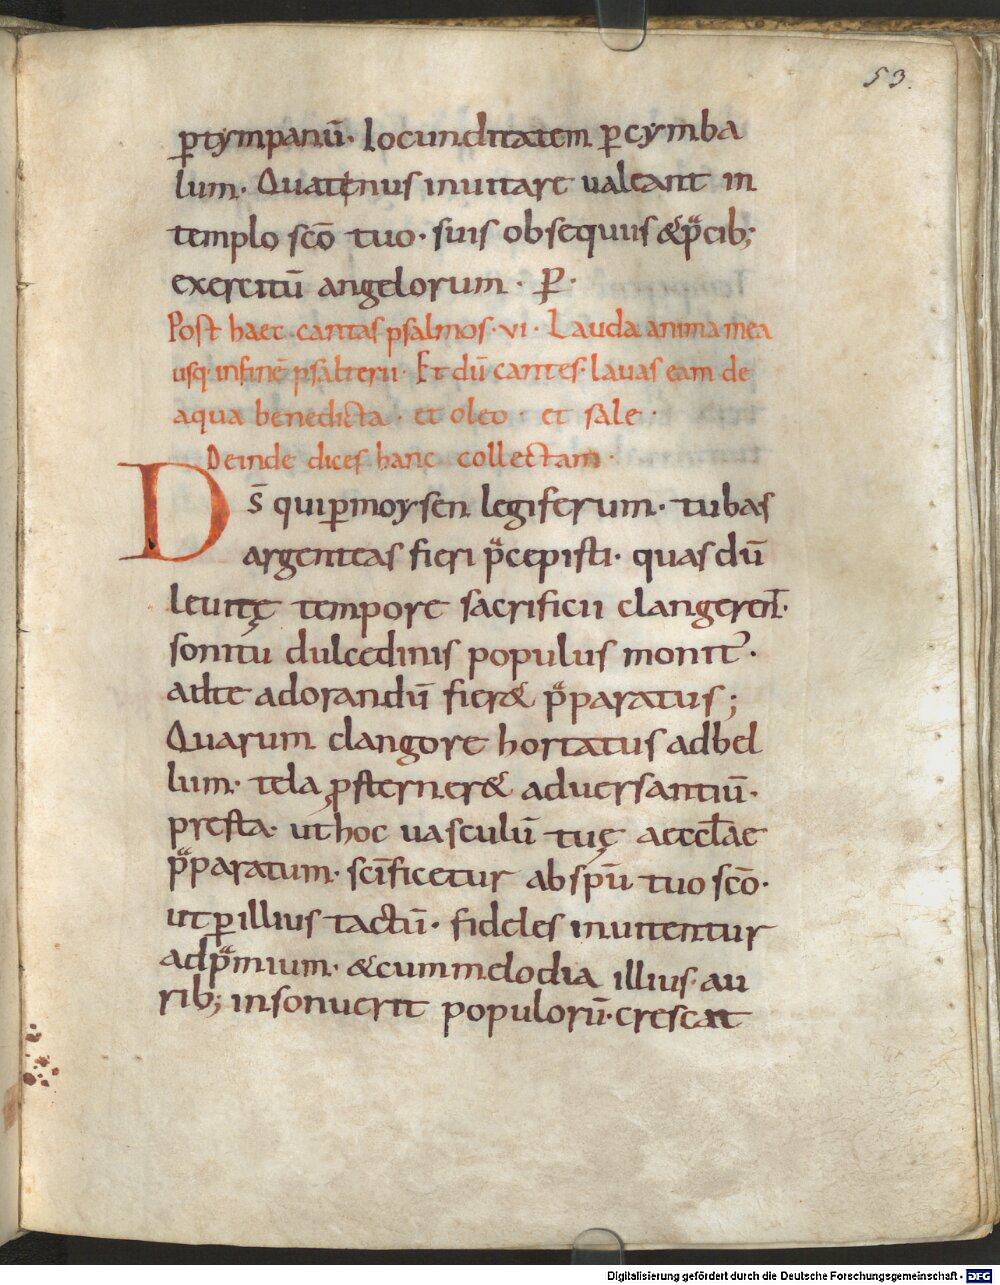 53.
ꝑtympanū· Iocunditatem ꝑcymba
lum· Quatenus inuitare ualeant in
templo sc̄o tuo· suis obsequiis &p̄cib;
exercitū angelorum· P̄·
Post haec cantas psalmos· vi· Lauda anima mea
usq; in finē psalterii· Et dū cantes· lauas eam de
aqua benedicta· et oleo· et sale·
Deinde dices hanc collectam·
Ds̄ qui ꝑ moysen legiferum· tubas
argenteas fieri p̄cepisti· quas dū
leuitę tempore sacrificii clangerent̄·
sonitu dulcedinis populus monit᾽·
ad te adorandū fier& p̄paratus;
Quarum clangore hortatus ad bel
lum· tela ꝓsterner& aduersantiū·
presta· ut hoc uasculū tuę aeccl̄ae
p̄paratum· sc̄ificetur ab sp̄u tuo sc̄o·
ut ꝑ illius tactū· fideles inuitentur
ad p̄mium· &cum melodia illius· au
rib; insonuerit populorū· crescat
Digitalisierung gefördert durch die Deutsche Forschungsgemeinschaft - DFG